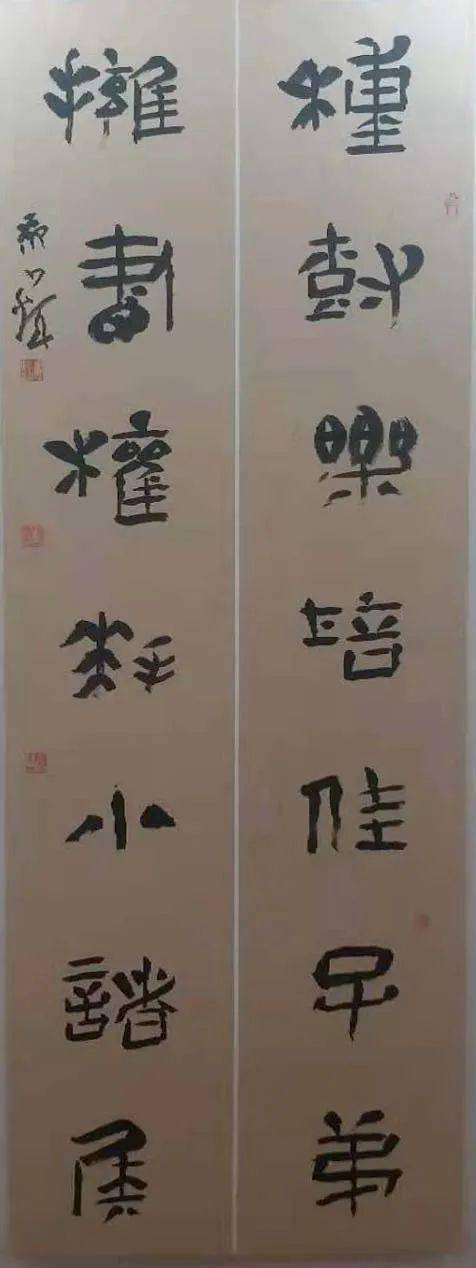 種樹樂培佳子弟
擁書權拜小諸侯